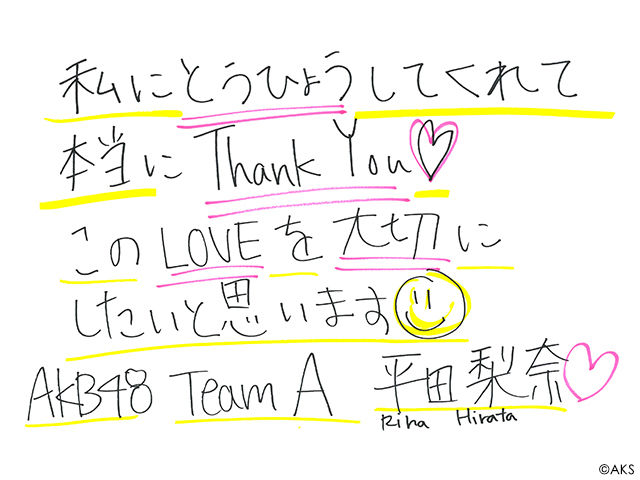 私にとうひょうしてくれて
本当に Thank You♡
この LOVE を大切に
したいと思います
AKB48 Team A 平田梨奈♡
Rina Hirata
©AKS